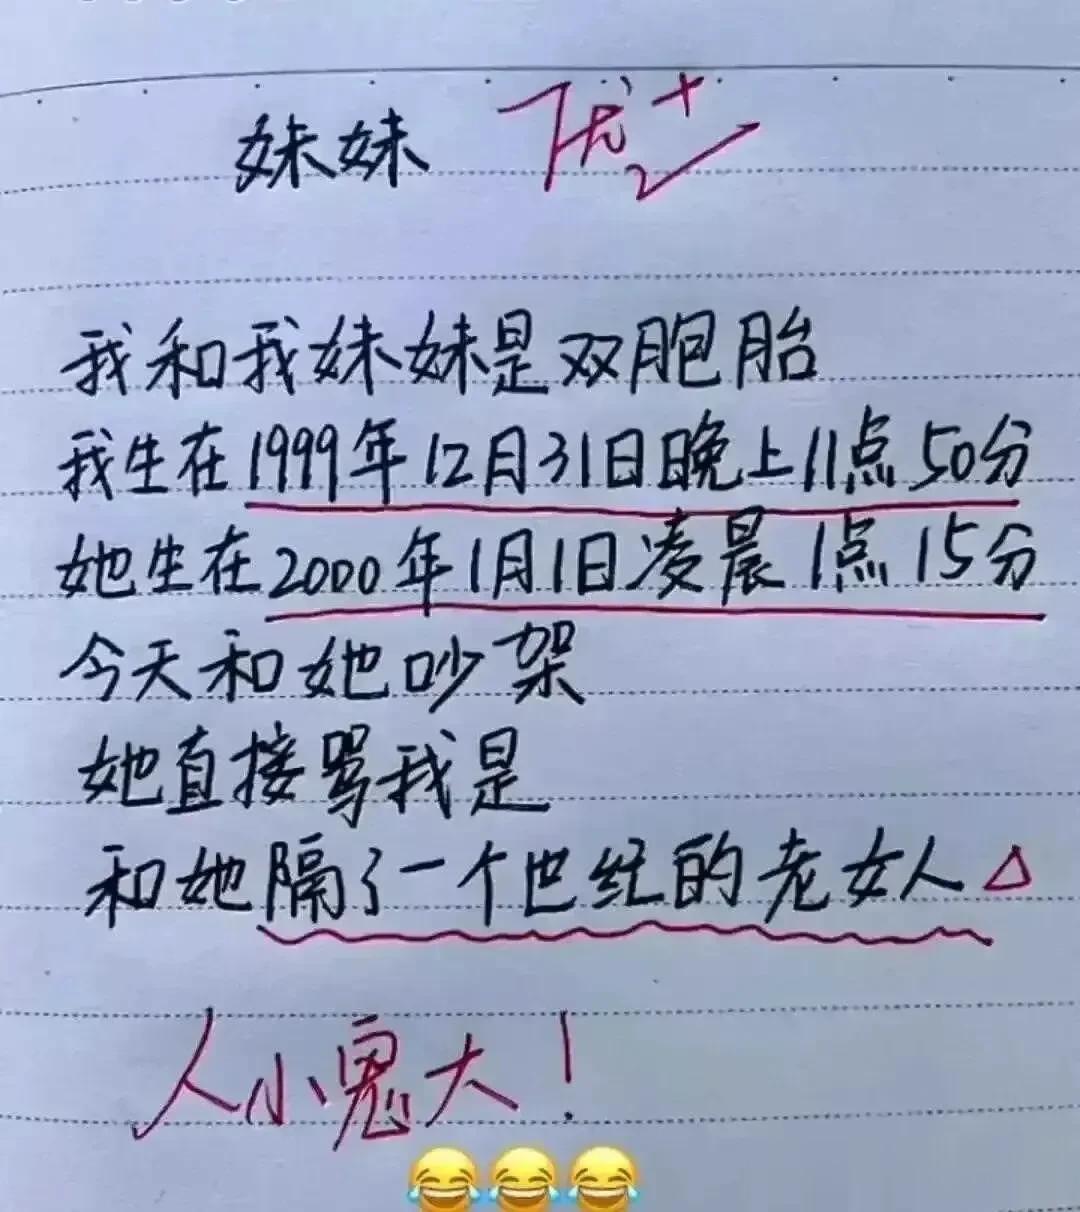 妹妹 优+
我和我妹妹是双胞胎
我生在1999年12月31日晚上11点50分
她生在2000年1月1日凌晨1点15分
今天和她吵架
她直接骂我是
和她隔了一个世纪的老女人
人小鬼大!
😂😂😂